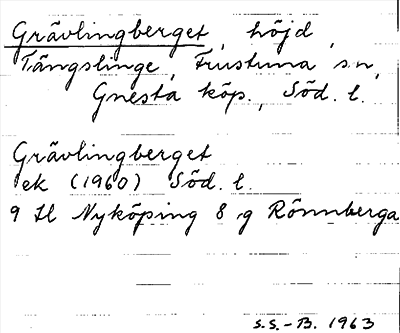 Grävlingberget, höjd,
Tängslinge, Frustuna sn,
Gnesta köp., Söd. l.
Grävlingberget
ek (1960) Söd. l.
9 H Nyköping 8 g Rönneberga
S.S.-B. 1963